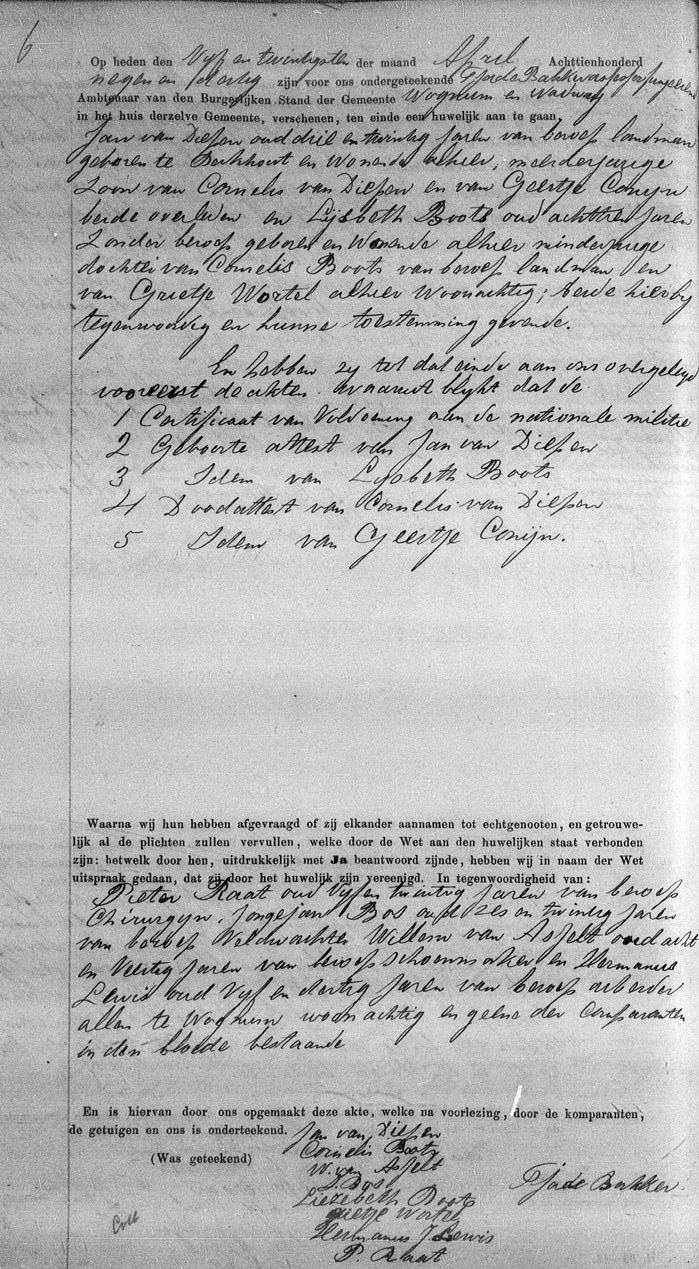 6
Op heden den Vyf en twintigsten der maand April Achttienhonderd
negen en dertig zijn voor ons ondergeteekende Tjade Bakker
Ambtenaar van den Burgerlijken Stand der Gemeente Wognum en Wadway
in het huis derzelve Gemeente, verschenen, ten einde een huwelijk aan te gaan
Jan van Diepen oud drie en twintig jaren van beroep landman
geboren te Berkhout en Wonende alhier, meerderjarige
Zoon van Cornelis van Diepen en van Geertje Conijn
beide overleden en Lijsbeth Boots oud achttien jaren
Zonder beroep geboren en Wonende alhier minderjarige
dochter van Cornelis Boots van beroep landman en
van Grietje Wortel alhier Woonachtig; beide hierby
tegenwoordig en hunne toestemming gevende.
En hebben zy tot dat einde aan ons overgelegd
vooreerst de akten waaruit blykt dat de
1 Certificaat van Voldoening aan de nationale militie
2 Geboorte attest van Jan van Diepen
3 Idem van Lysbeth Boots
4 Doodattest van Cornelis van Diepen
5 Idem van Geertje Conijn.
Waarna wij hun hebben afgevraagd of zij elkander aannamen tot echtgenooten, en getrouwe-
lijk al de plichten zullen vervullen, welke door de Wet aan den huwelijken staat verbonden
zijn: hetwelk door hen, uitdrukkelijk met Ja beantwoord zijnde, hebben wij in naam der Wet
uitspraak gedaan, dat zij door het huwelijk zijn vereenigd. In tegenwoordigheid van:
Pieter Raat oud Vyf en twintig jaren van beroep
Chirurgyn, Jongejan Bos oud zes en twintig jaren
van beroep Veldwachter Willem van Asfelt oud acht
en Veertig jaren van beroep schoenmaker en Hermanus
Lewis oud Vyf en dertig jaren van beroep arbeider
allen te Wognum woonachtig en geene der Comparanten
in den bloede bestaande
En is hiervan door ons opgemaakt deze akte, welke na voorlezing, door de komparanten,
de getuigen en ons is onderteekend. Jan van Diepen
(Was geteekend) Cornelis Boots
W. van Asfelt
J. Bos Tjade Bakker
Liezebeth Boots
Grietje Wortel
Hermanus J Lewis
P. Raat